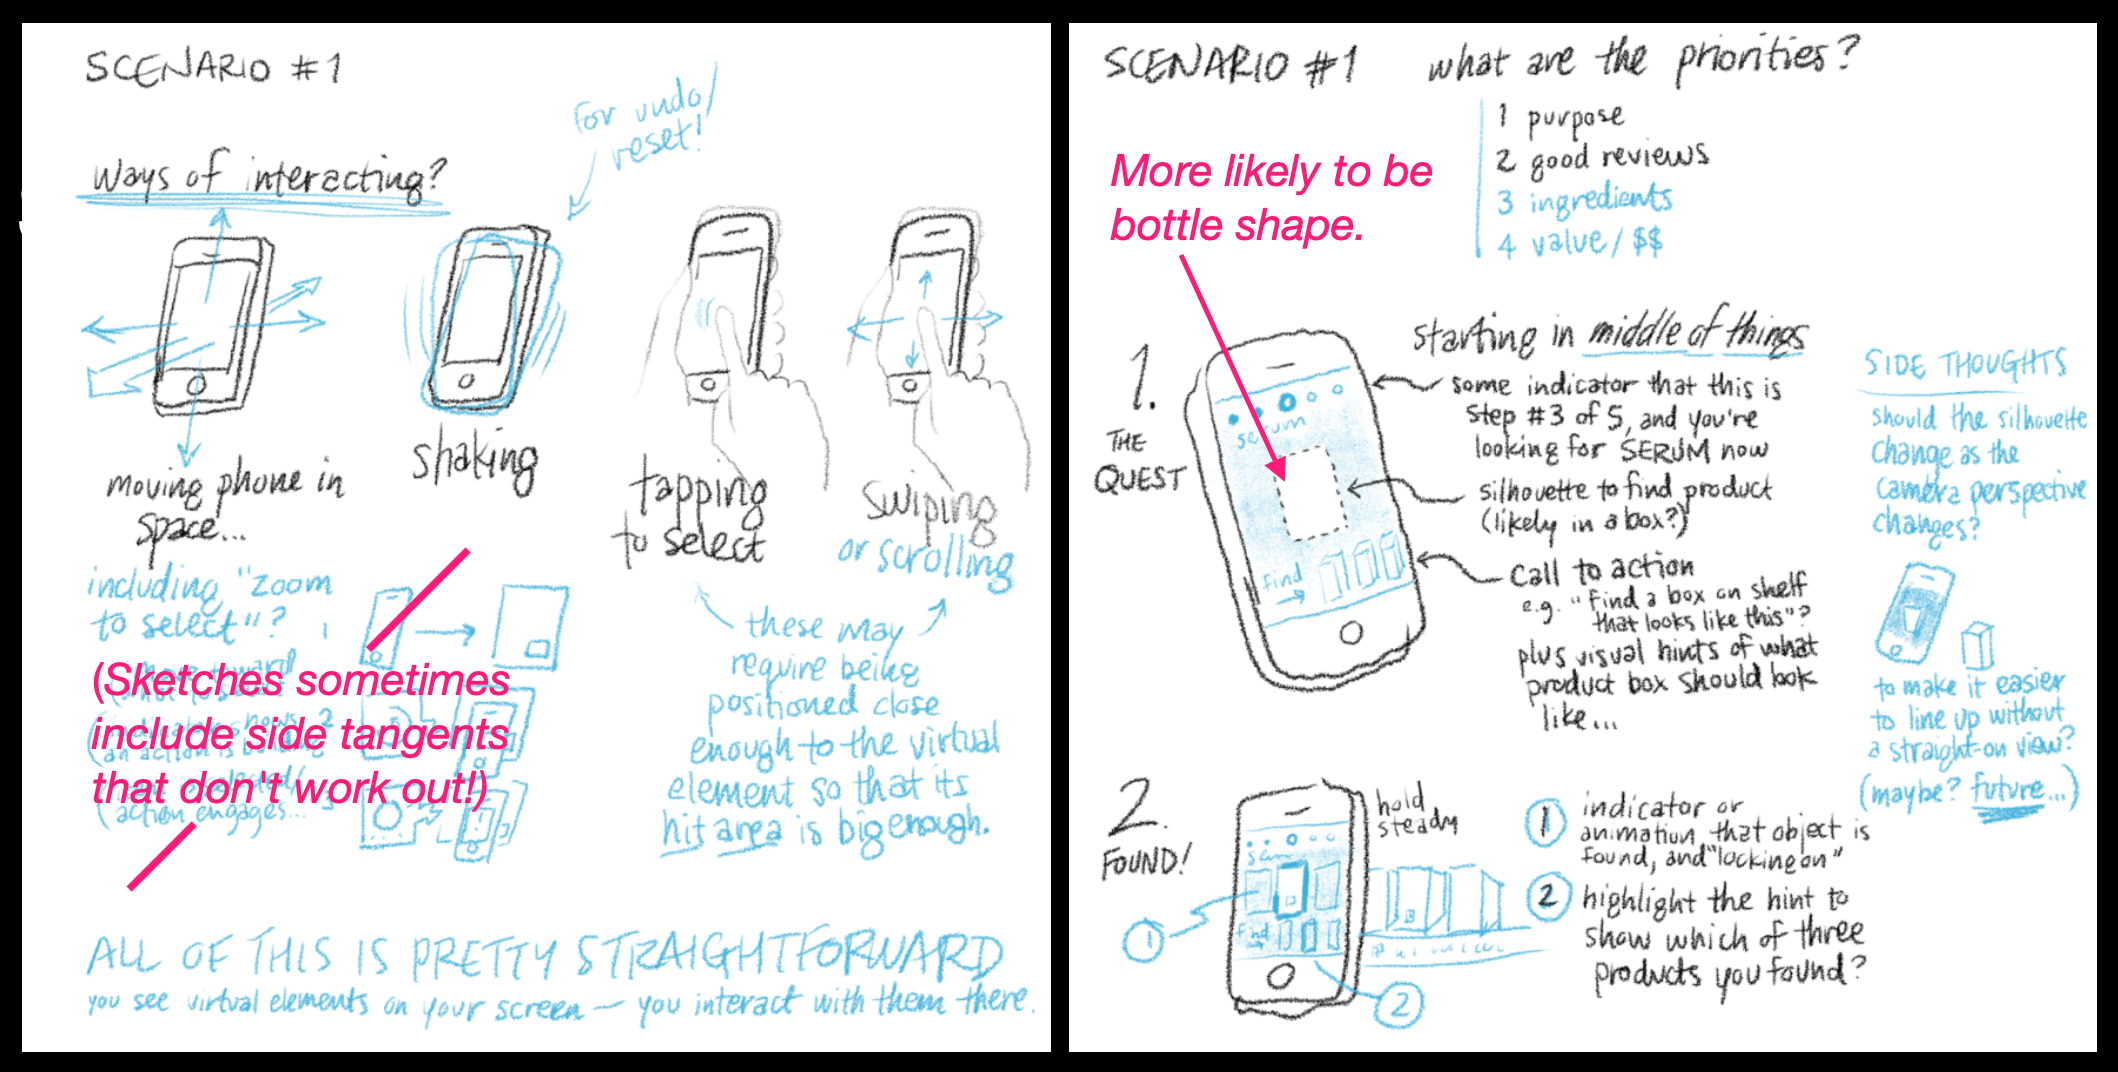 SCENARIO #1
for undo/
reset!
Ways of interacting?
moving phone in
space...
shaking
tapping
to select
swiping
or scrolling
including "zoom
to select"?
1
(Sketches sometimes
include side tangents
that don't work out!)
move toward
(indicator shows 2
an action is building
selected/
(action engages... 3
these may
require being
positioned close
enough to the virtual
element so that its
hit area is big enough.
ALL OF THIS IS PRETTY STRAIGHTFORWARD
you see virtual elements on your screen – you interact with them there.
SCENARIO #1 what are the priorities?
1 purpose
2 good reviews
3 ingredients
4 value/$$
More likely to be
bottle shape.
1.
THE
QUEST
serum
find
starting in middle of things
some indicator that this is
step #3 of 5, and you're
looking for SERUM now
silhouette to find product
(likely in a box?)
call to action
e.g. "find a box on shelf
that looks like this"?
plus visual hints of what
product box should look
like...
SIDE THOUGHTS
should the silhouette
change as the
camera perspective
changes?
to make it easier
to line up without
a straight-on view?
(maybe? future...)
2.
FOUND!
hold
steady
find
1
2
1 indicator or
animation that object is
found, and "locking on"
2 highlight the hint to
show which of three
products you found?